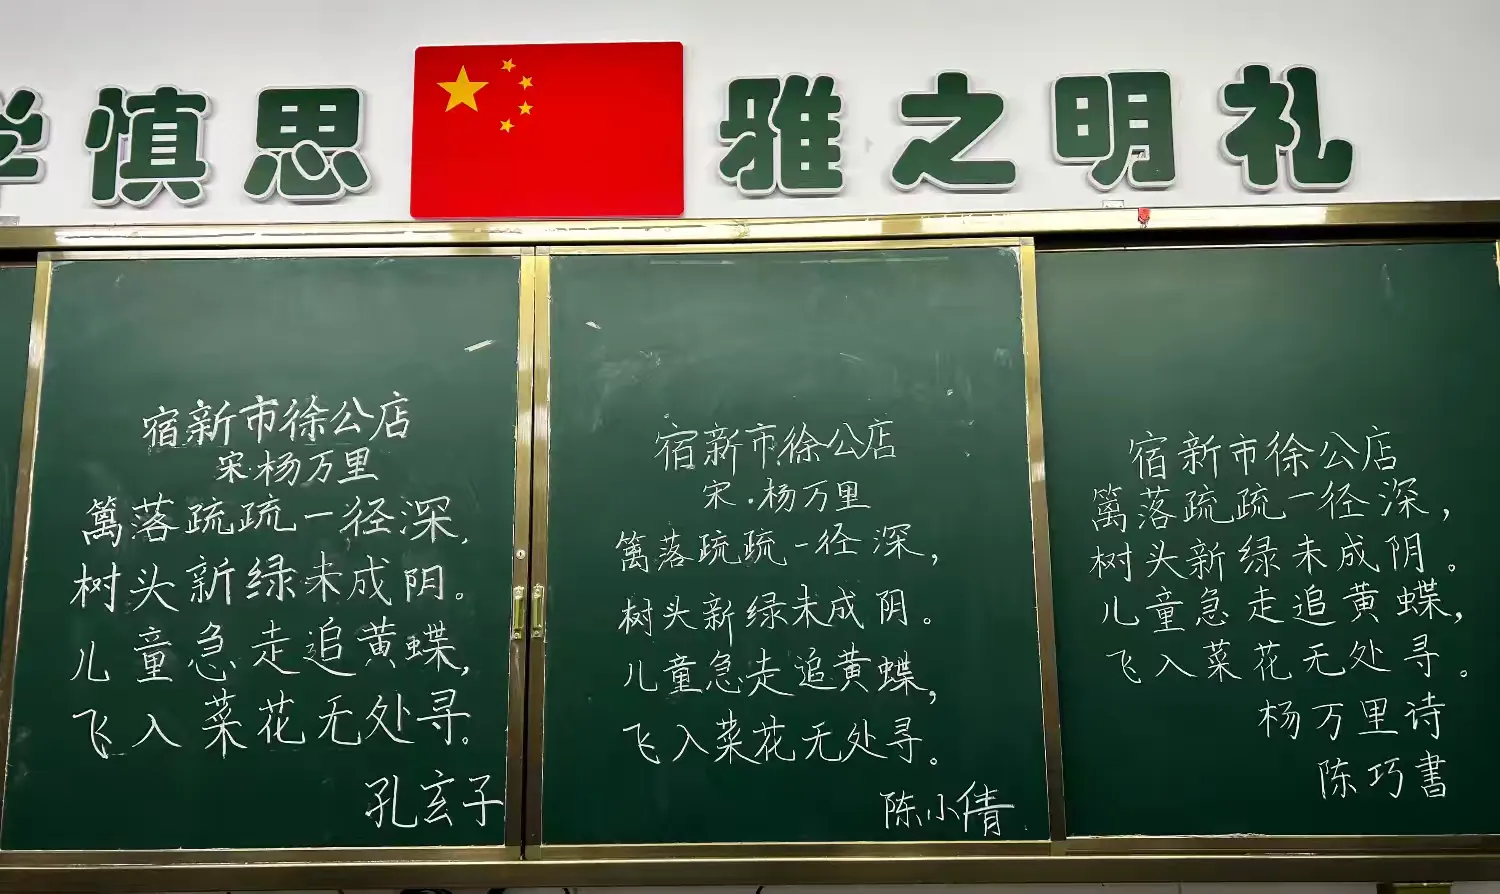 学慎思 雅之明礼
宿新市徐公店
宋·杨万里
篱落疏疏一径深,
树头新绿未成阴。
儿童急走追黄蝶,
飞入菜花无处寻。
孔玄子
宿新市徐公店
宋·杨万里
篱落疏疏一径深,
树头新绿未成阴。
儿童急走追黄蝶,
飞入菜花无处寻。
陈小倩
宿新市徐公店
篱落疏疏一径深,
树头新绿未成阴。
儿童急走追黄蝶,
飞入菜花无处寻。
杨万里诗
陈巧書